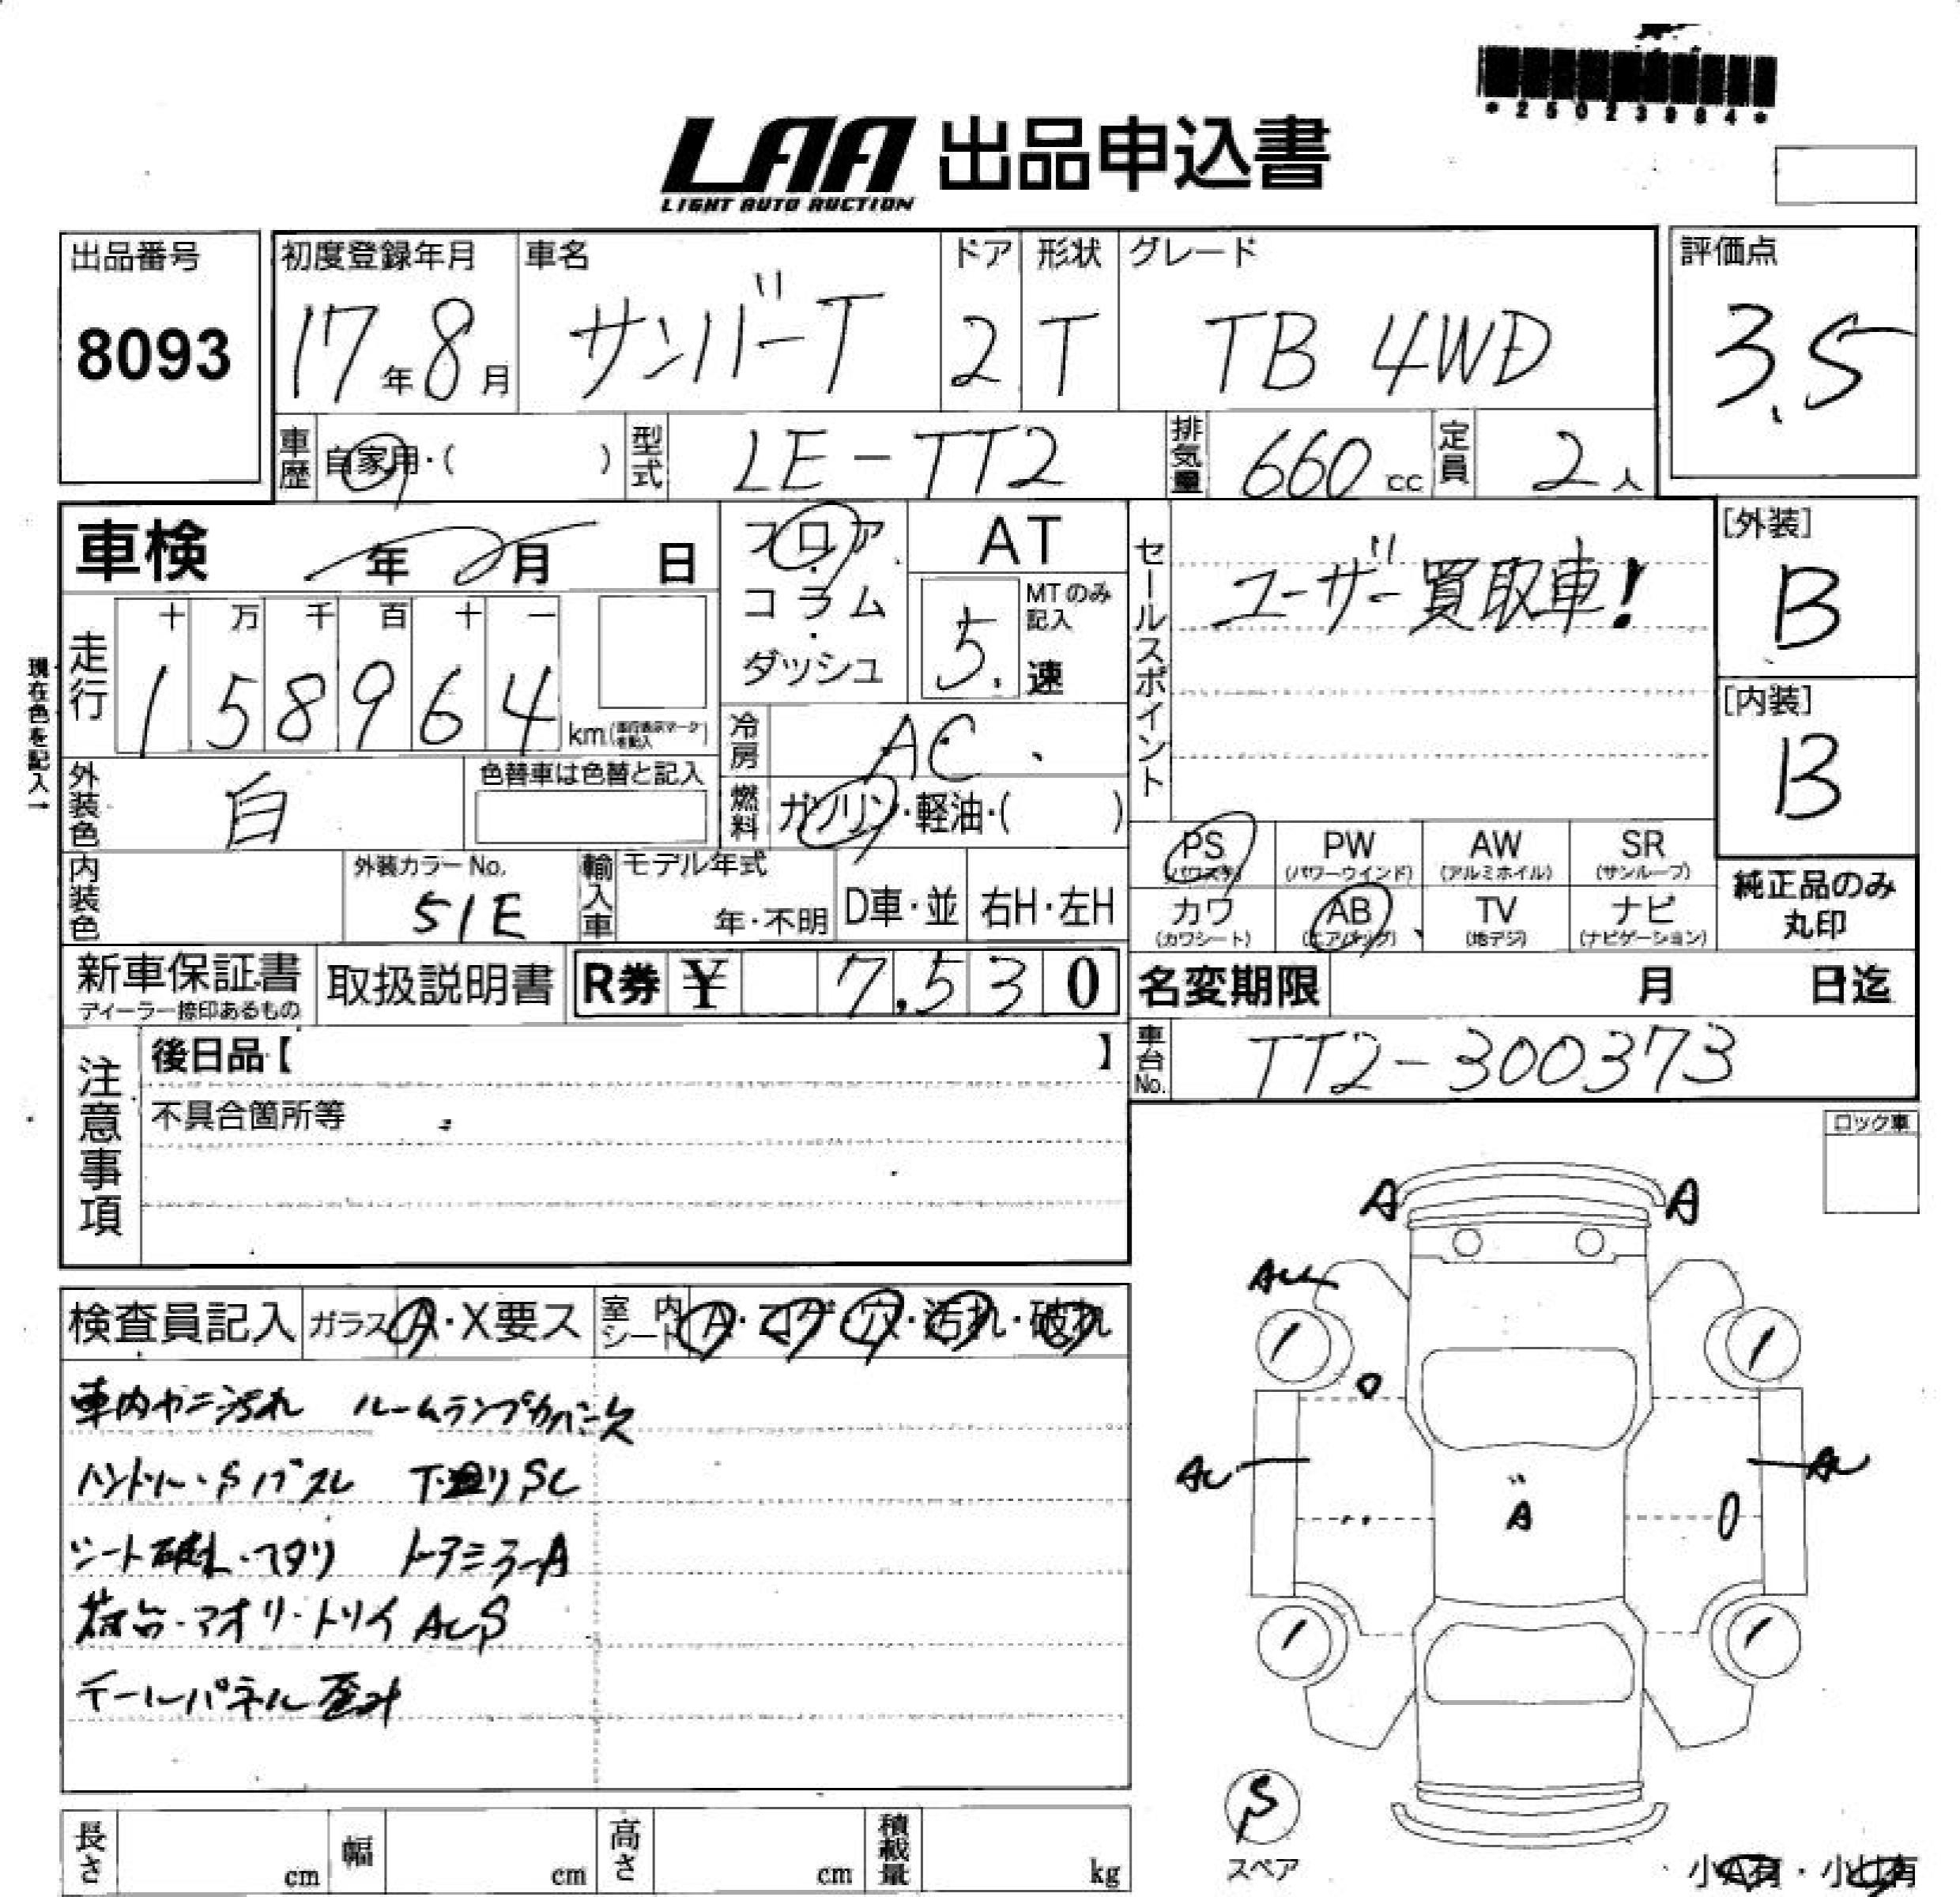 *25023984*
LAA 出品申込書
LIGHT AUTO AUCTION
出品番号 初度登録年月 車名 ドア 形状 グレード 評価点
8093 17年8月 サンバーT 2 T TB 4WD 3.5
車歴 自家用・( ) 型式 LE-TT2 排気量 660 cc 定員 2人
車検 年 月 日 フロア・コラム・ダッシュ AT セールスポイント ユーザー買取車! [外装]
B
MTのみ記入
5.速
走行 十 万 千 百 十 一
158964 km
現在色を記入→
[内装]
B
冷房 AC
外装色 白 色替車は色替と記入 燃料 ガソリン・軽油・( )
PS PW AW SR
(パワステ) (パワーウインド) (アルミホイル) (サンルーフ)
内装色 外装カラーNo. 輸入車 モデル年式
51E 年・不明 D車・並 右H・左H
カワ AB TV ナビ 純正品のみ丸印
(カワシート) (エアバッグ) (地デジ) (ナビゲーション)
新車保証書 取扱説明書 R券 ¥ 7,530 名変期限 月 日迄
ディーラー捺印あるもの
注意事項 後日品【 】 車台No. TT2-300373
不具合箇所等
ロック車
A A
検査員記入 ガラス A・X要ス 室内シート A・コゲ・穴・汚れ・破れ
車内ヤニ汚れ ルームランプカバー欠
ハンドル・Sノブスレ 下廻りSC
シート破れ・ヘタリ ドアミラーA
荷台・アオリ・トリイ ACS
テールパネル歪み
A
S
スペア
長さ cm 幅 cm 高さ cm 積載量 kg
小A有・小U有